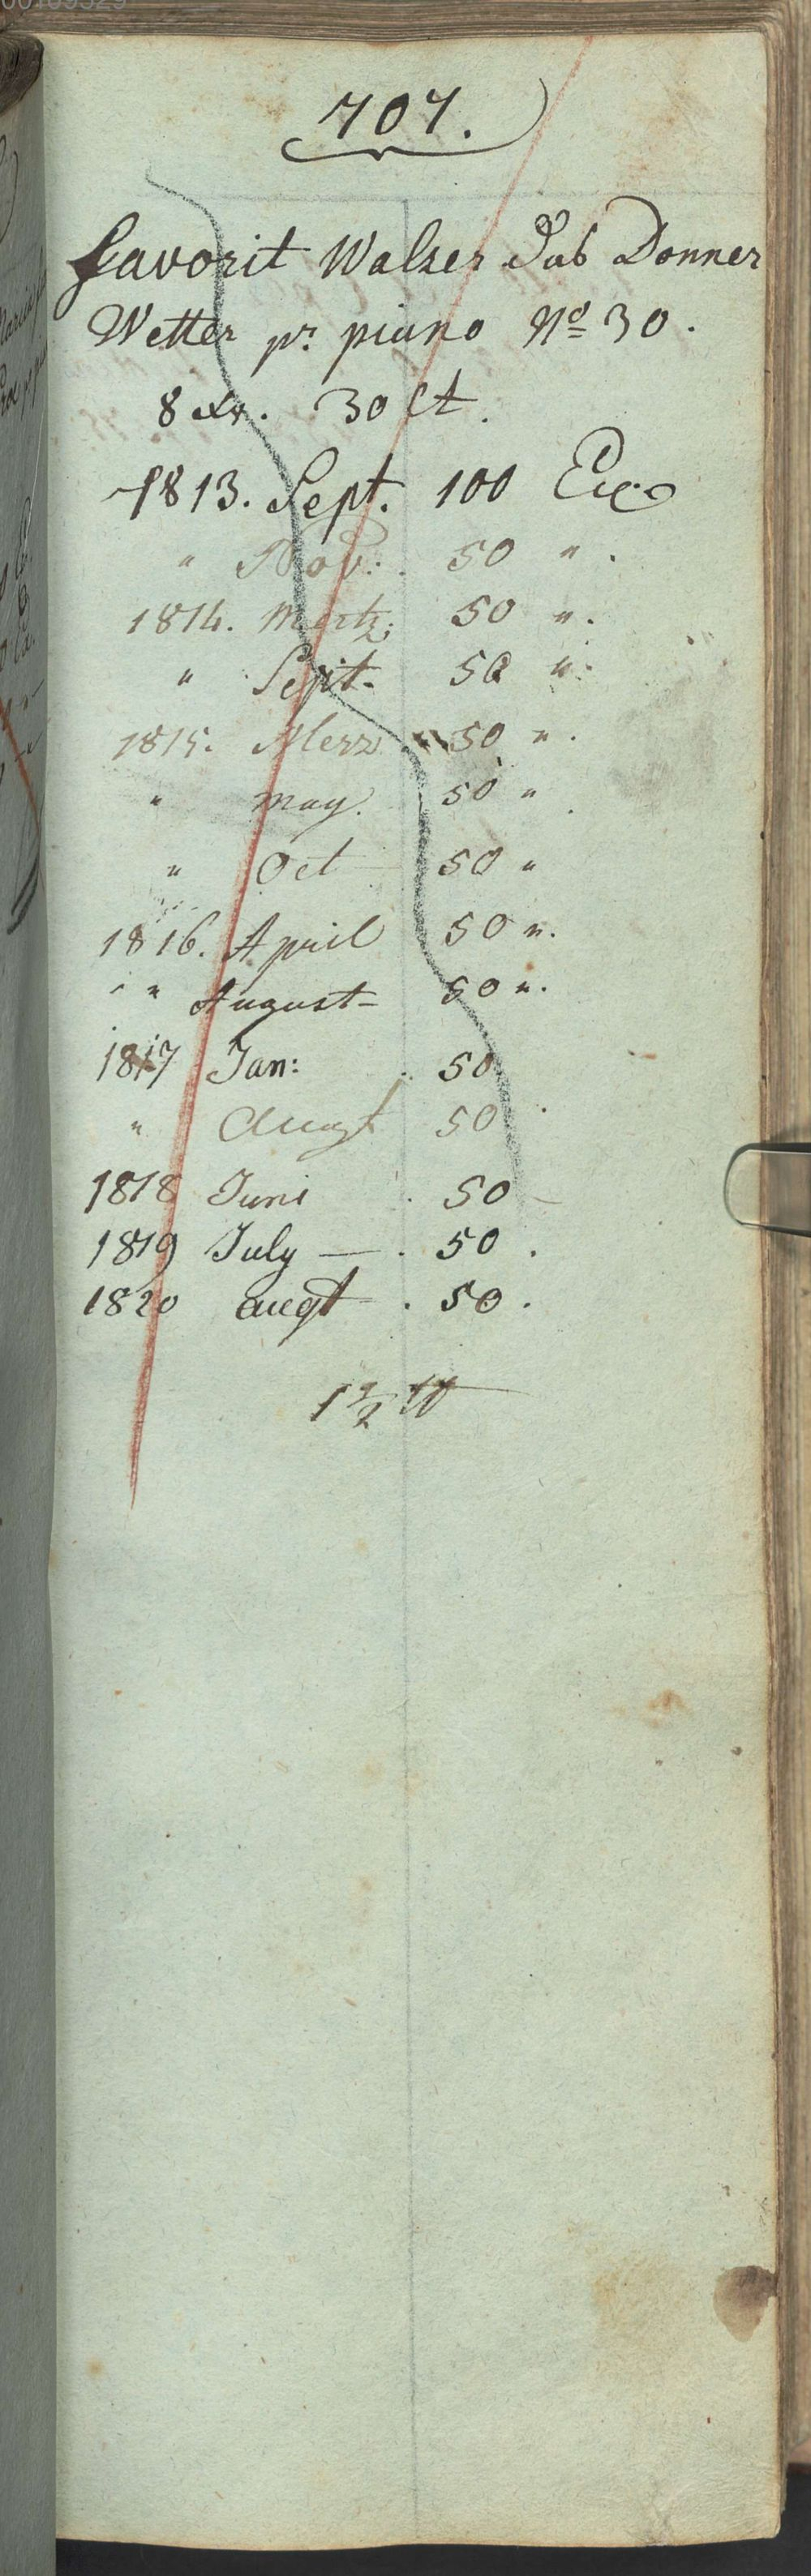 707.
Favorit Walzer Das Donner
Wetter pr. piano No 30.
8 xr. 30 Ct.
1813. Sept. 100 Ex
" Nov: 50 ".
1814. Mertz. 50 ".
" Sept. 50 ".
1815. Merz 50 ".
" May. 50 "
" Oct 50 "
1816. April 50 ".
" August 50 ".
1817 Jan: 50
" Augt 50
1818 Juni 50
1819 July — 50.
1820 augt 50.
1 1/2